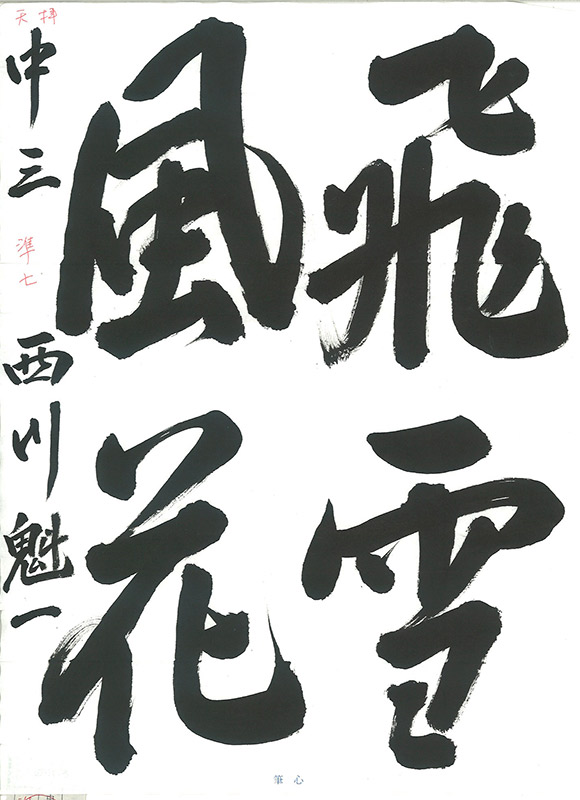 飛雪
風花
天拝
中三 準七 西川魁一
筆心